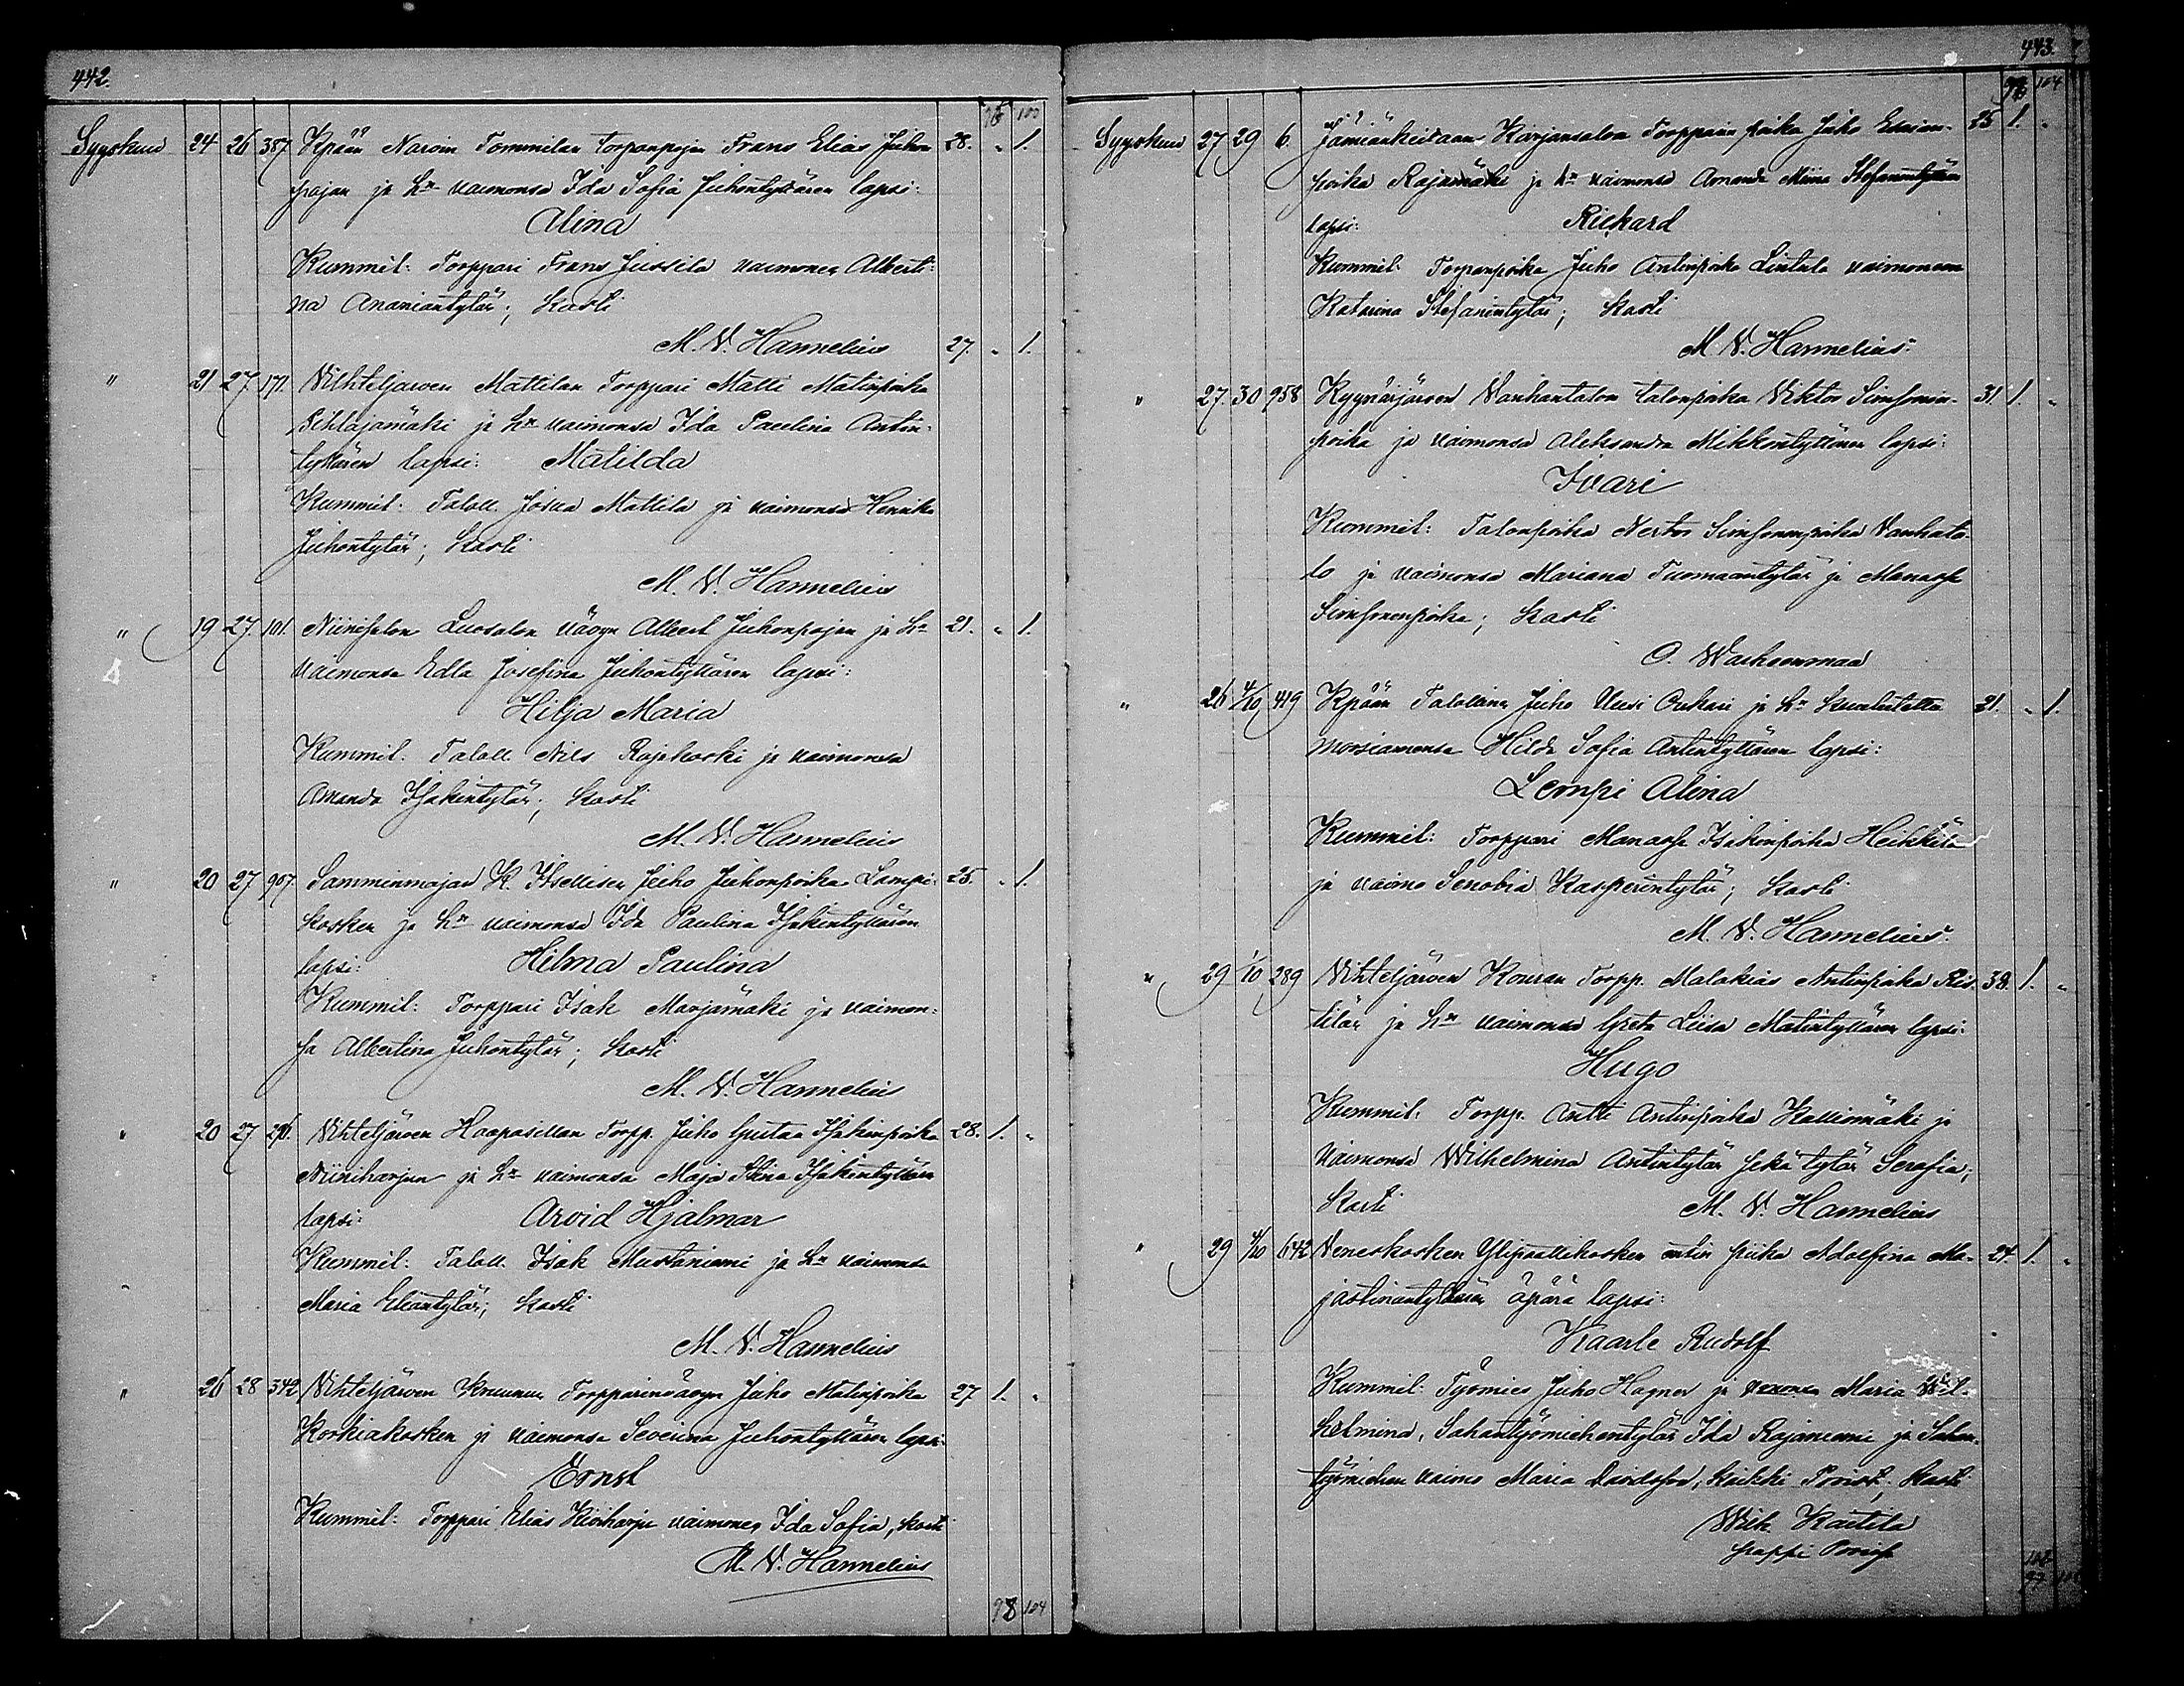 442.
96 103
Syyskuu 24 26 387 Kpään Narvin Tommilan torpanpojan Frans Elias Juhon 28. " 1.
pojan ja hn vaimonsa Ida Sofia Juhontyttären lapsi:
Alina
Kummit: Torppari Frans Jussila vaimonea Alberti-
na Ananiantytär; kasti
M. V. Hannelius
" 21 27. 171. Vihteljärven Mattilan Torppari Matti Matinpoika 27. " 1.
Pihlajamäki ja hn vaimonsa Ida Paulina Antin-
tyttären lapsi: Matilda
Kummit: Taloll. Josua Mattila ja vaimonsa Henrika
Juhontytär; kasti
M. V. Hannelius
" 19 27. 101. Niinisalon Luosalon vävyn Albert Juhonpojan ja hn 21. " 1.
vaimonsa Edla Josefina Juhontyttären lapsi:
Hilja Maria
Kummit: Taloll. Nils Rajakoski ja vaimonsa
Amanda Isakintytär; kasti
M. V. Hannelius
" 20 27 907. Samminmajan K. Itsellisen Juho Juhonpoika Lampi- 25. " 1.
kosken ja hn vaimonsa Ida Paulina Isakintyttären
lapsi: Hilma Paulina
Kummit: Torppari Isak Marjamäki ja vaimon-
sa Albertina Juhontytär; kasti
M. V. Hannelius
" 20 27. 291. Vihteljärven Haapasillan Torpp. Juho Gustaa Isakinpoika 28. 1. "
Niiniharjun ja hn vaimonsa Maja Stina Isakintyttären
lapsi: Arvid Hjalmar
Kummit: Taloll. Isak Mustaniemi ja hn vaimonsa
Maria Eliantytär; kasti
M. V. Hannelius
" 26 28 342 Vihteljärven Torpparinvävyn Juho Matinpoika 27 1. "
Korkiakosken ja vaimonsa Severina Juhontyttären lapsi:
Ernst
Kummit: Torppari Elias Kiviharju vaimonea Ida Sofia, kasti
M. V. Hannelius
98 104
443.
98 104
Syyskuu 27 29 6. Jämiänkeitaan Karjansalon Torpparin poika Juho Esaian- 25 1. "
poika Rajamäki ja hn vaimonsa Amanda Miina Stefanintyttären
lapsi: Rickard
Kummit: Torpanpoika Juho Antinpoika Lintula vaimoneen
Katarina Stefanintytär; kasti
M. V. Hannelius.
" 27. 30 958 Kyynärjärven Vanhantalon talonpoika Viktor Simsonin- 31. 1. "
poika ja vaimonsa Aleksandra Mikkontyttären lapsi:
Ivari
Kummit: Talonpoika Nestor Simsoninpoika Vanhata-
lo ja vaimonsa Mariana Tuomaantytär ja Manasse
Simsoninpoika; kasti
O. Warhoenmaa
" 26 4/10 419 Kpään Talollinen Juho Uusi Ouhari ja hn kuulutettu 21. " 1.
morsiamensa Hilda Sofia Antintyttären lapsi:
Lempi Alina
Kummit: Torppari Manasse Isakinpoika Heikkilä
ja vaimo Senobia Kasperintytär; kasti
M. V. Hannelius.
" 29 1/10 289 Vihteljärven Kouran Torpp. Malakias Antinpoika Ris- 38. 1. "
tilän ja hn vaimonsa Greta Liisa Matintyttären lapsi:
Hugo
Kummit: Torpp. Antti Antinpoika Kalliomäki ja
vaimonsa Wilhelmina Antintytär sekä tytär Serafia;
kasti M. V. Hannelius
" 29 4/10 642 Veneskosken Ylipaattikosken entin piika Adolfina Ma- 24. 1. "
jastinantyttären äpärä lapsi:
Kaarle Rudolf
Kummit: Työmies Juho Hagner ja vaimonsa Maria Wil-
helmina, Sahantyömiehentytär Ida Rajaniemi ja Sahan-
työmiehen vaimo Maria Davidsson, kaikki Porist; kasti
Wih. Kaitila
pappi Poriss